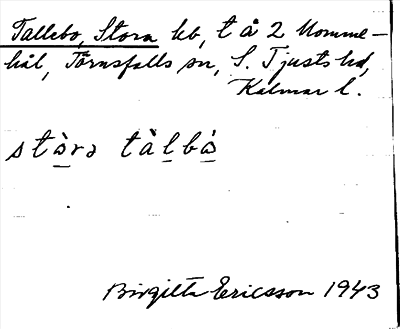 Tallebo, Stora hb, t å 2 Momme-
hål, Törnsfalls sn, S. Tjusts hd,
Kalmar l.
stòrə tàlbò
Birgitta Ericsson 1943